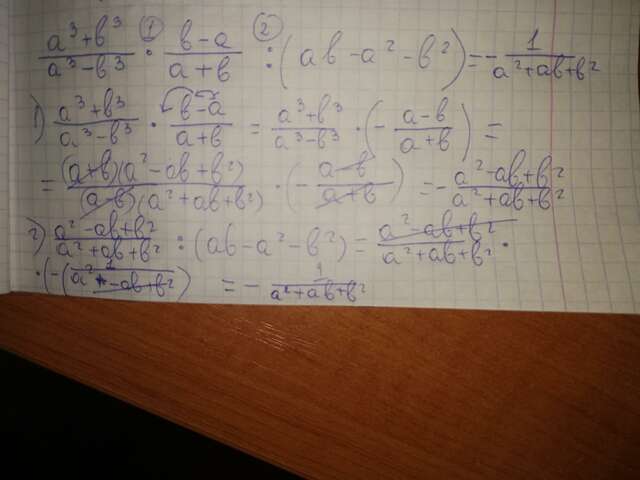 a³+b³/a³-b³ ① · b-a/a+b ② : (ab-a²-b²) = -1/a²+ab+b²
1) a³+b³/a³-b³ · b-a/a+b = a³+b³/a³-b³ · (-a-b/a+b) =
= (a+b)(a²-ab+b²)/(a-b)(a²+ab+b²) · (-a-b/a+b) = -a²-ab+b²/a²+ab+b²
2) a²-ab+b²/a²+ab+b² : (ab-a²-b²) = a²-ab+b²/a²+ab+b² ·
· (-(1/a²-ab+b²) = -1/a²+ab+b²